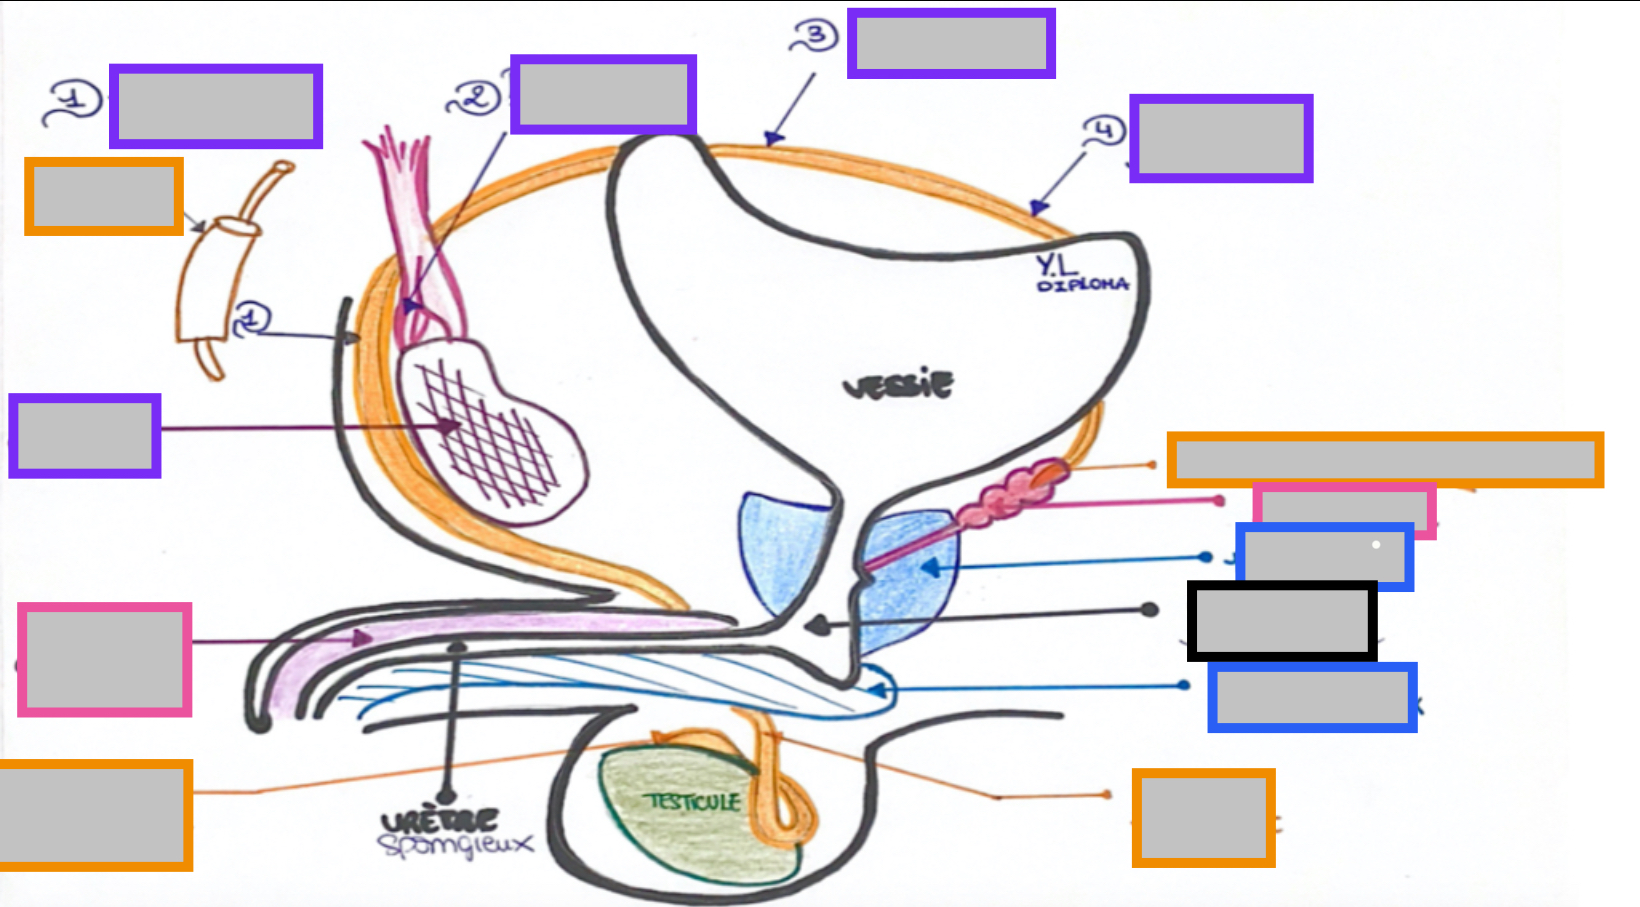 1
2
3
4
1
Y.L
DIPLOMA
VESSIE
TESTICULE
URÈTRE
Spongieux